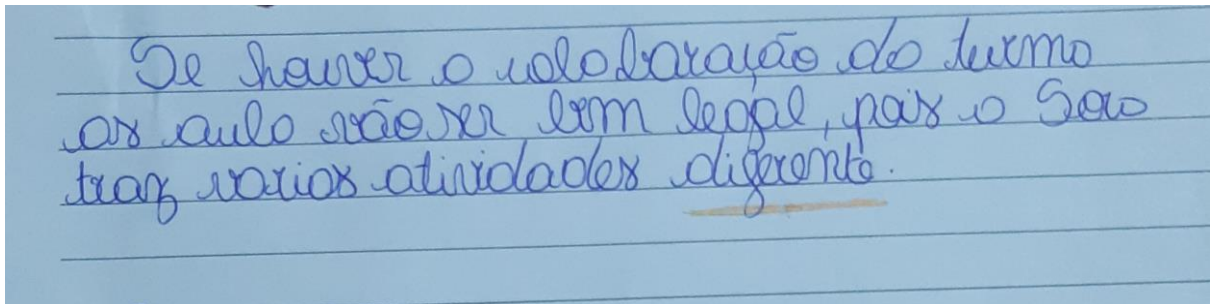 Se houver a colobaração da turma
as aula vão ser bem legal, pois a Sora
traz varias atividades diferente.